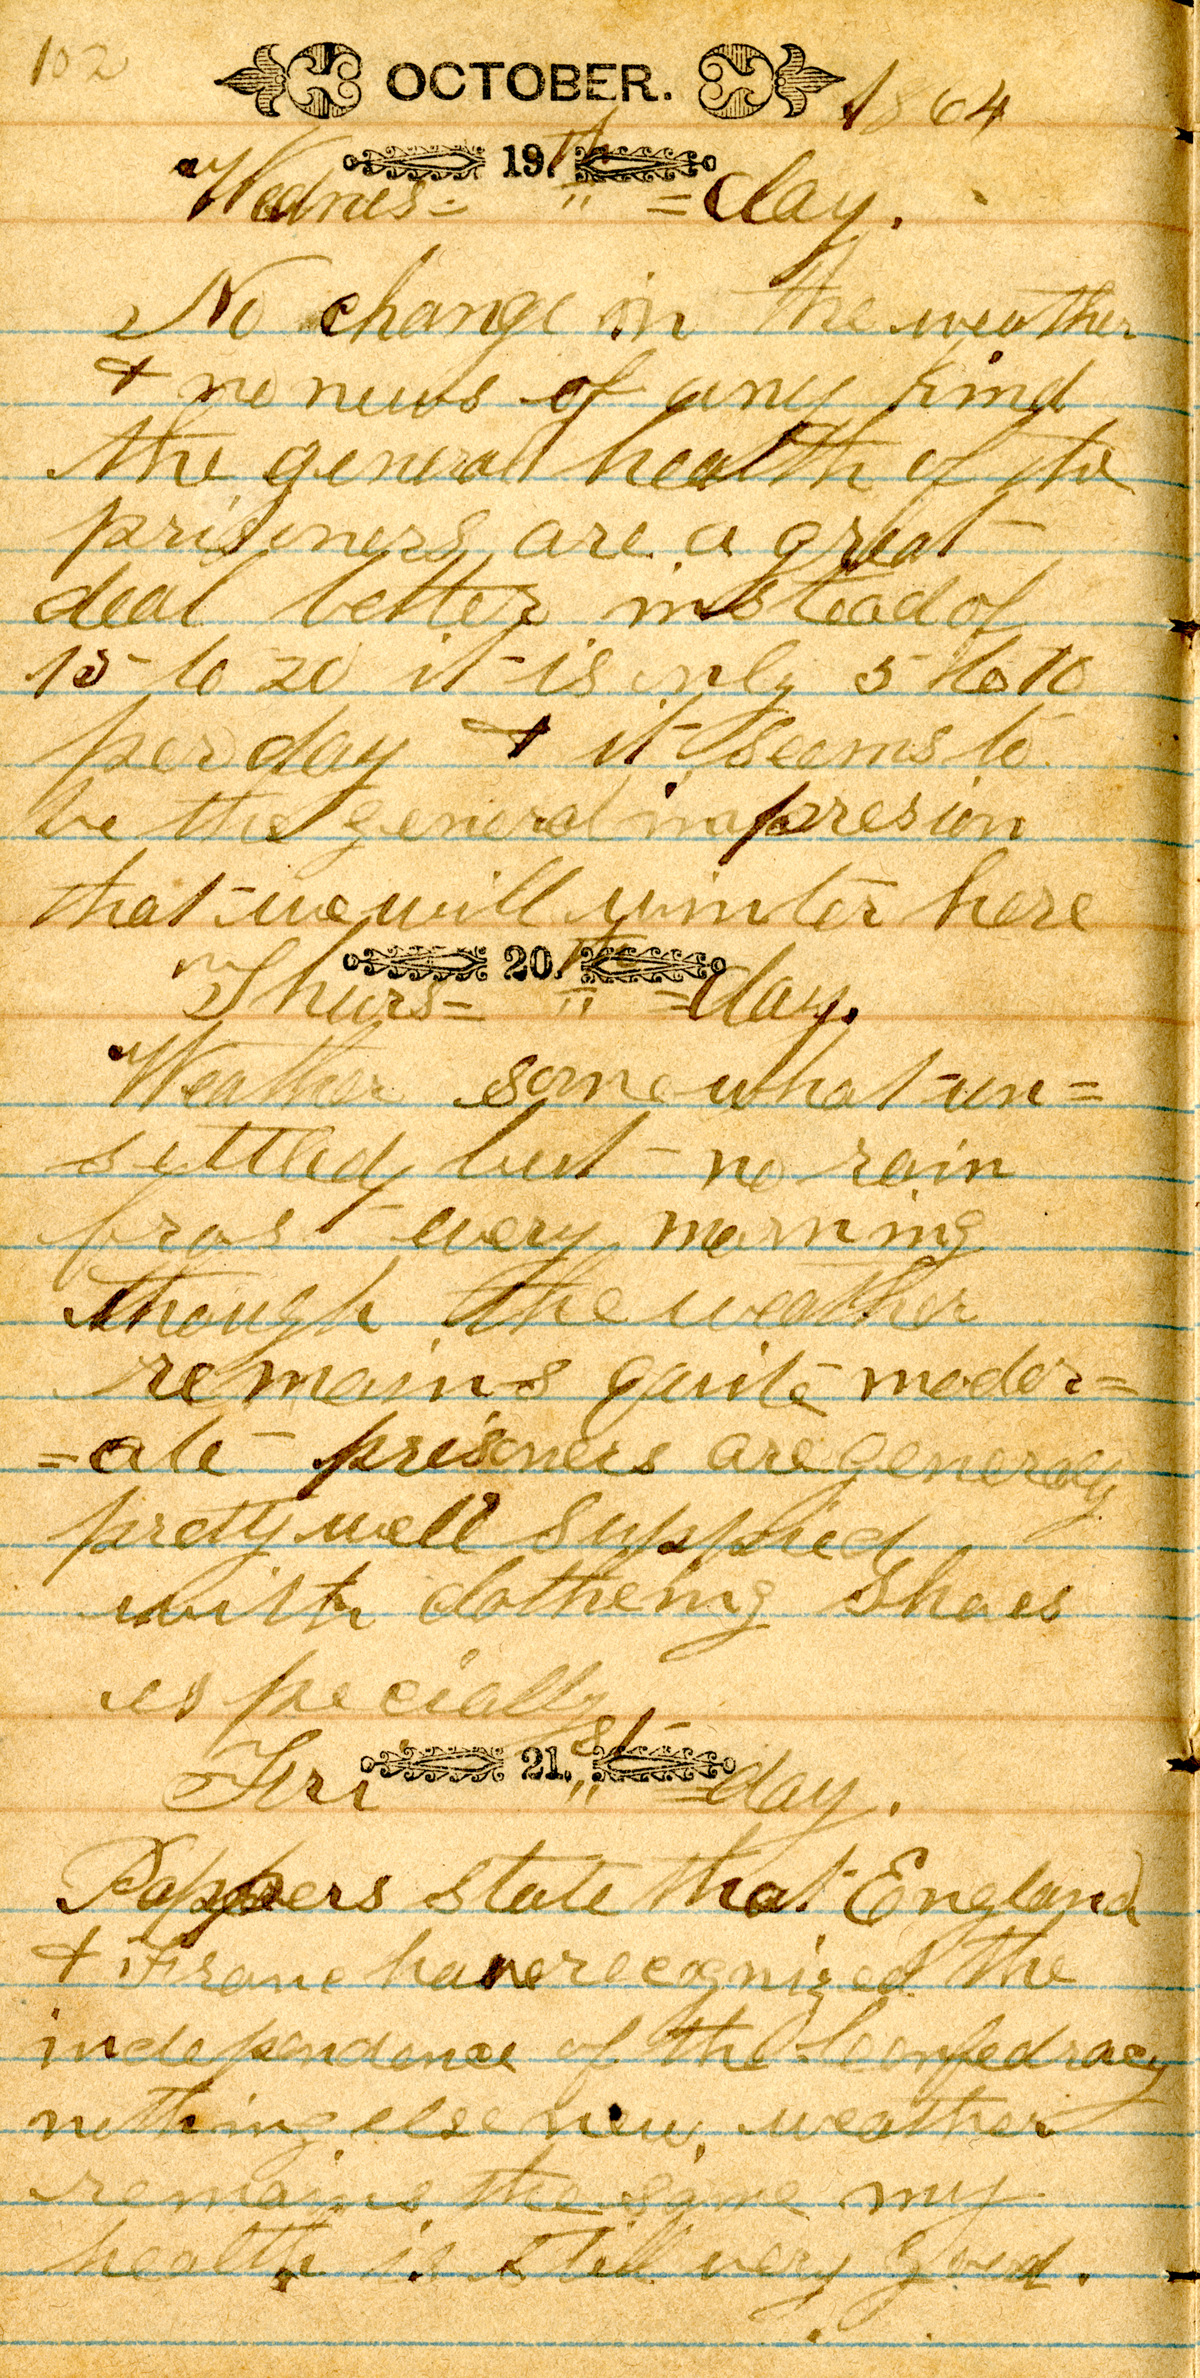 102 OCTOBER. 1864
19.th
Wednes= " =day.
No change in the weather
+ no news of any kind
the general health of the
prisoners are a great
deal better instead of
15 to 20 it is only 5 to 10
per day + it seems to
be the general impresion
that we will winter here
20.th
Thurs= " =day.
Weather some what un=
settled but no rain
frost every morning
though the weather
remains quite moder=
=ate prisoners are generaly
pretty well supplied
with clotheing Shoes
especially
21.st
Fri " =day.
Pappers state that England
+ Franc have recognized the
independance of the Confedracy
nothing else new. weather
remains the same my
health is still very good.